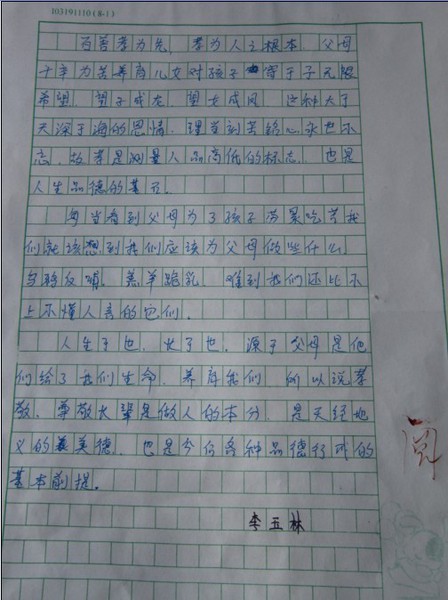 103191110(8-1)
百善孝为先，孝为人之根本，父母
千辛为苦养育儿女对孩子寄于于无限
希望，望子成龙，望女成凤，这种大于
天深于海的恩情，理当刻苦铭心永世不
忘，故孝是测量人品高低的标志，也是
人生品德的基石。
每当看到父母为了孩子劳累吃苦我
们就该想到我们应该为父母做些什么
乌鸦反哺，羔羊跪乳，难到我们还比不
上不懂人言的它们。
人生于世，长于世，源于父母是他
们给了我们生命，养育我们，所以说孝
敬、尊敬长辈是做人的本分，是天经地
义的美德，也是今后各种品德行成的
基本前提。
李五林
阅